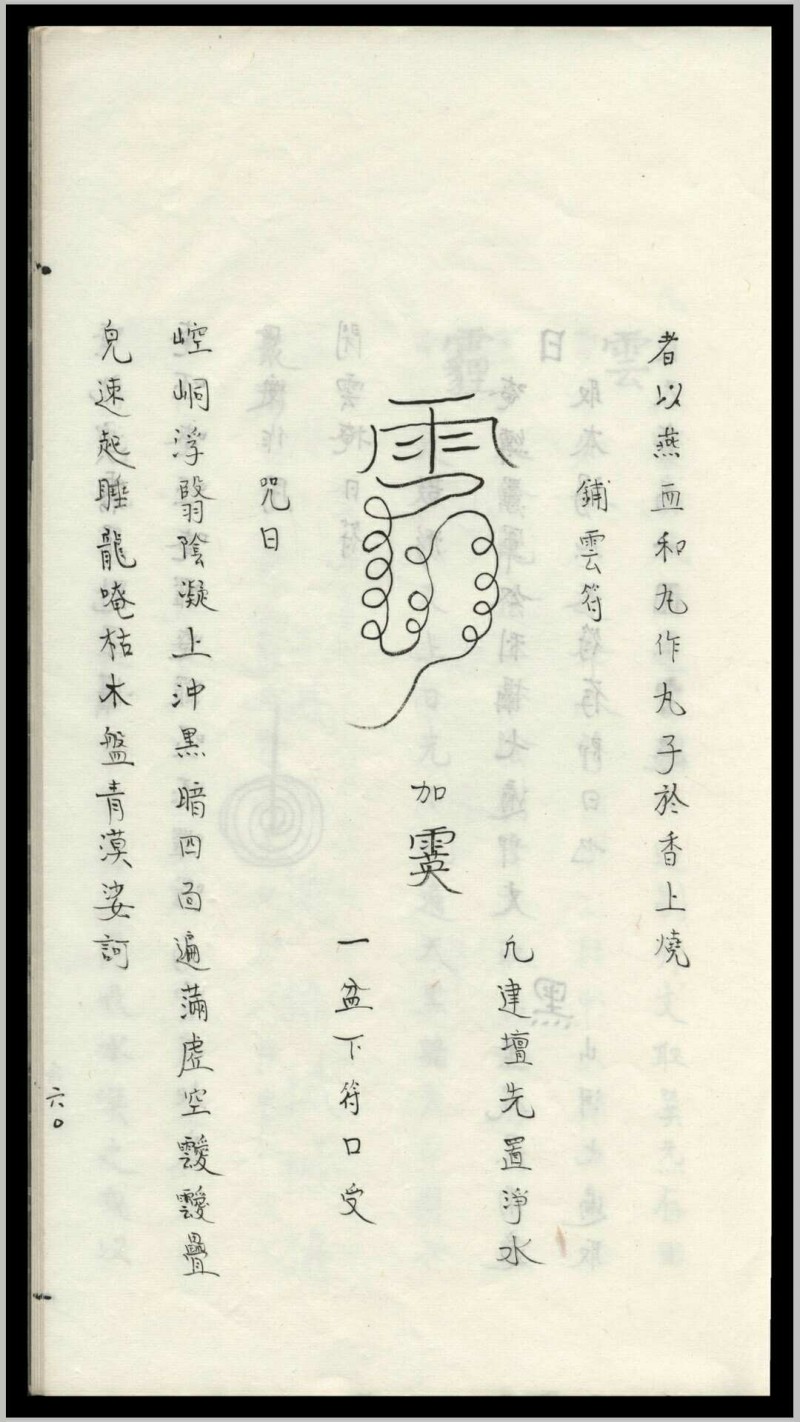 者以燕血和丸作丸子於香上燒
鋪雲符
凢建壇先置淨水
加霙
一盆下符口受
咒曰
崆峒浮翳陰凝上沖黑暗四面遍滿虛空靉靉疊
皃速起睡龍唵枯木盤青漠娑訶
六〇